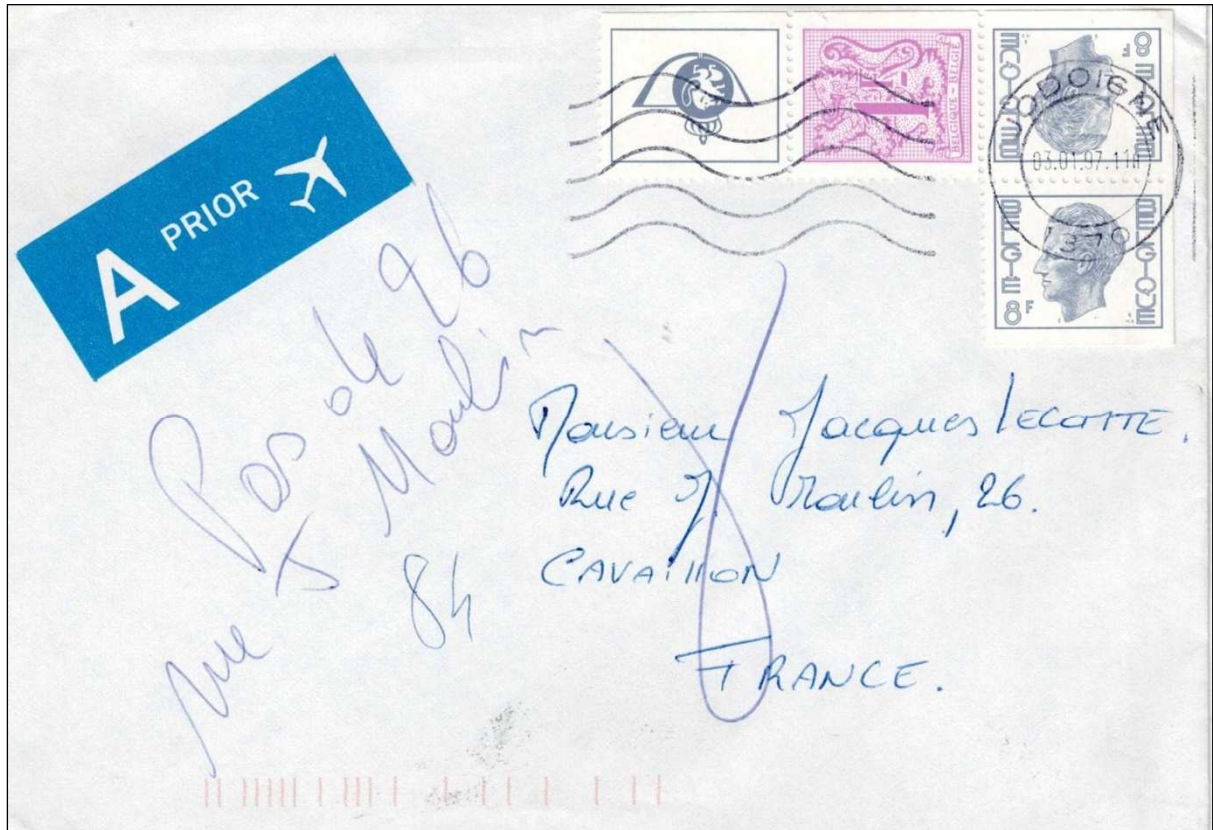 A PRIOR
1F
BELGIQUE - BELGIË
BELGIË 8F BELGIQUE
JODOIGNE
03.01.97-11H
1370
BELGIË 8F BELGIQUE
Pas de 26
rue J Moulin
84
Monsieur Jacques LECOTTE.
Rue J. Moulin, 26.
CAVAILLON
FRANCE.